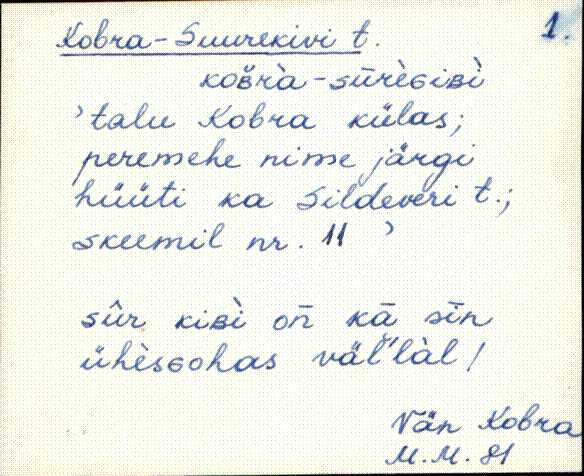 1.
Kobra-Suurekivi t.
koʙ̆rà-sūrèɢiʙì
'talu Kobra külas;
peremehe nime järgi
hüüti ka Sildeveri t.;
skeemil nr. 11 '
sûr kiʙì on̄ kā sīn
ühèsɢohas väl'làl!
Vän Kobra
M.M. 81